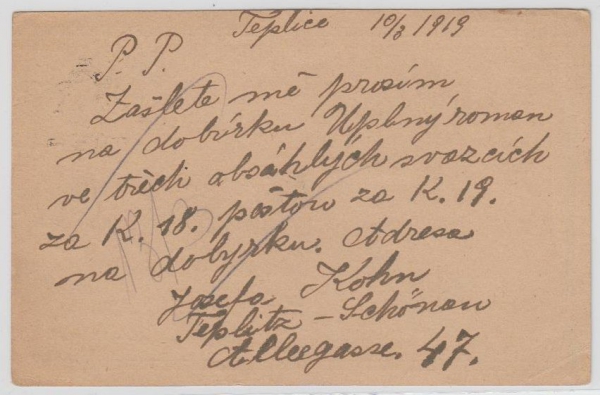 Teplice 10/3 1919
P. P.
Zašlete mě prosím
na dobírku Uplný roman
ve třech obsáhlých svazcích
za K. 18. poštou za K. 19.
na dobyrku. Adresa
Josefa Kohn
Teplitz – Schönau
Alleegasse. 47.